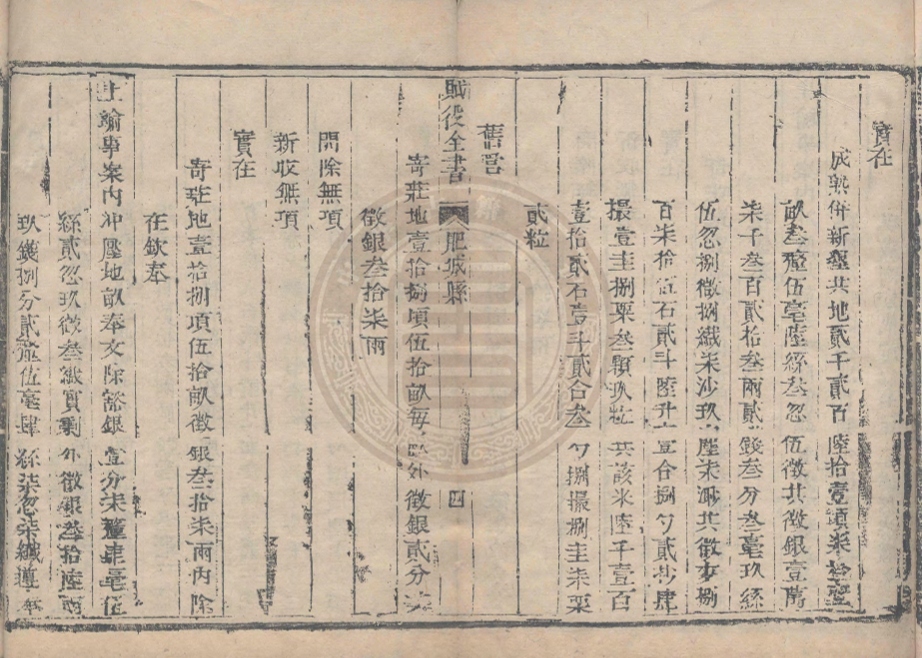 實在
成熟併新墾共地貳千貳百陸拾壹頃柒拾壹
畝叁釐伍毫陸絲叁忽伍微共徵銀壹萬
柒千叁百貳拾叁兩貳錢叁分叁毫玖絲
伍忽捌微捌纖柒沙玖塵柒渺共徵麥捌
百柒拾伍石貳斗陸升壹合捌勺貳抄肆
撮壹圭捌粟叁顆玖粒共該米陸千壹百
壹拾貳石壹斗貳合叁勺捌撮捌圭柒粟
貳粒
舊管
賦役全書 肥城縣 四
寄莊地壹拾捌頃伍拾畝每畝外徵銀貳分
徵銀叁拾柒兩
開除無項
新收無項
實在
寄莊地壹拾捌頃伍拾畝徵銀叁拾柒兩內除
在欽奉
上諭事案內沖壓地畝奉文除豁銀壹分柒釐肆毫伍
絲貳忽玖微叁纖實剩外徵銀叁拾陸兩
玖錢捌分貳釐伍毫肆絲柒忽柒纖遵